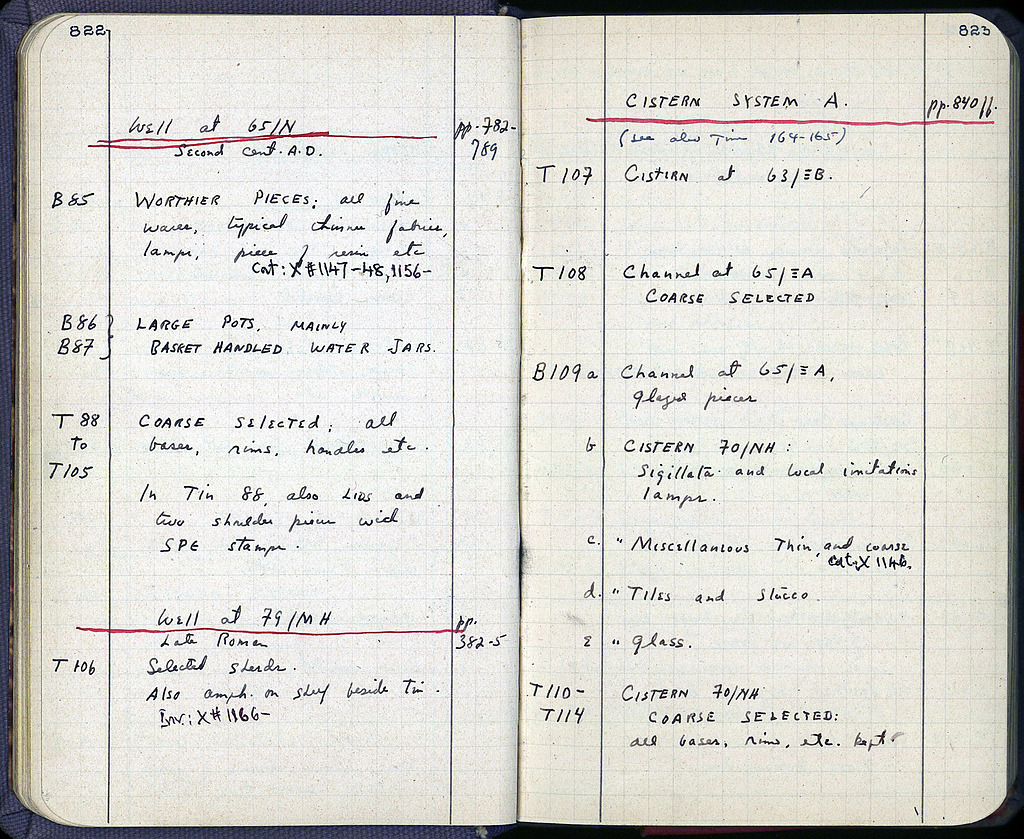 822
Well at 65/N
pp. 782-
789
Second cent. A.D.
B85
WORTHIER PIECES; all fine
wares, typical thinner fabrics,
lamps, piece of resin etc
Cat: X #1147-48, 1156-
B86
LARGE POTS, MAINLY
B87
BASKET HANDLED WATER JARS.
T 88
COARSE SELECTED; all
to
bases, rims, handles etc.
T105
In Tin 88, also LIDS and
two shoulder pieces with
SPE stamps.
Well at 79/MH
pp.
382-5
Late Roman
T 106
Selected sherds.
Also amph. on shelf beside Tin.
Inv.: X# 1166-
823
CISTERN SYSTEM A.
pp. 840 ff.
(see also Tins 164-165)
T 107
CISTERN at 63/ΞB.
T108
Channel at 65/ΞA
COARSE SELECTED
B109 a
Channel at 65/ΞA,
glazed pieces
b
CISTERN 70/NH:
Sigillata and local imitations
lamps.
c.
" Miscellaneous Thin and coarse
cat: X 1146.
d.
" Tiles and stucco.
e
" glass.
T110-
CISTERN 70/NH
T114
COARSE SELECTED:
all bases, rims, etc. kept